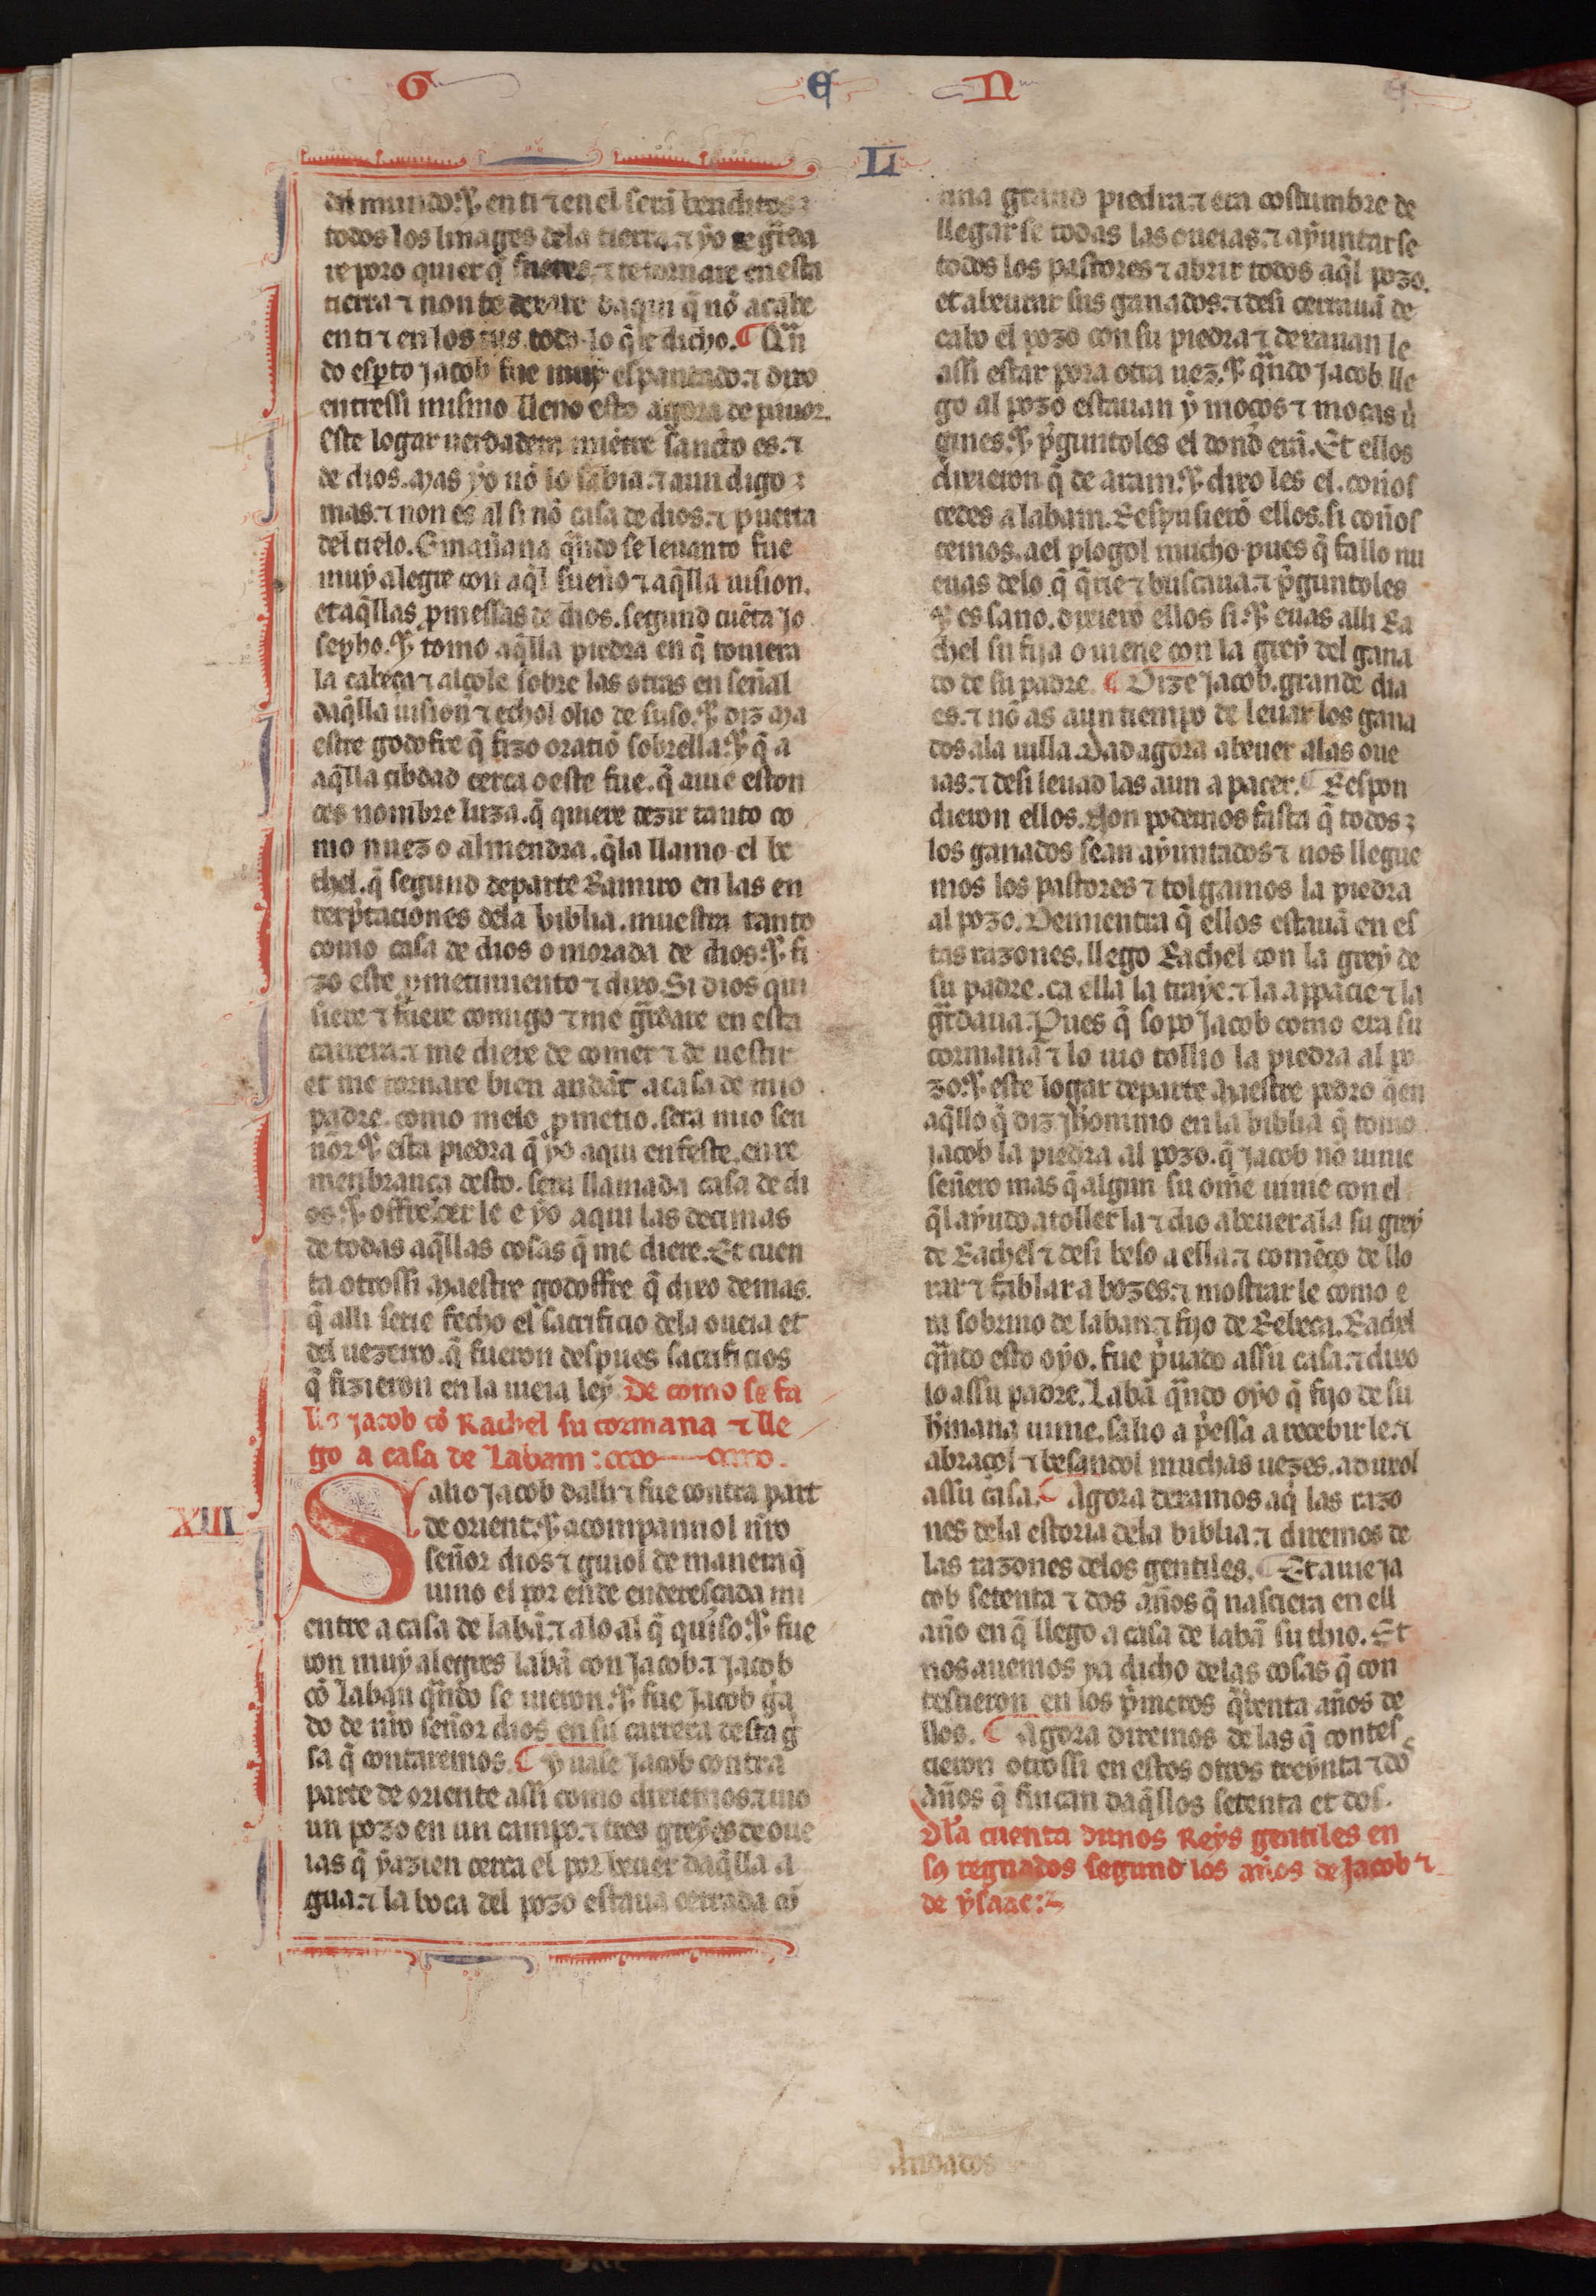 G E N E
LI
del mundo. ⁊ en ti ⁊ en el será benditos
todos los linages dela tierra. ⁊ yo te g̃rda
re poro quier q̃ fueres. ⁊ te tornare en esta
tierra ⁊ non te dexare daqui q̃ nõ acabe
en ti ⁊ en los tus todo lo q̃ te dicho. ¶ Qũ
do esp̃to Jacob fue muy espantado. ⁊ dixo
entressi mismo lleno esto agora de pauor.
Este logar uerdadera miẽtre sancto es. ⁊
de dios. mas yo nõ lo sabia. ⁊ aun digo
mas. ⁊ non es al si nõ casa de dios. ⁊ puerta
del cielo. Gmañana q̃ndo se leuanto fue
muy alegre con aq̃l sueño ⁊ aq̃lla uision.
et aq̃llas p̃messas de dios. segund cuẽta Jo
sepho. ⁊ tomo aq̃lla piedra en q̃ touiera
la cabeça ⁊ alçole sobre las otras en señal
daq̃lla uision ⁊ echol olio de suso. ⁊ diz ma
estre godofre q̃ fizo oratiõ sobrella. ⁊ q̃ a
aq̃lla cibdad cerca o este fue. q̃ auie eston
ces nombre luza. q̃ quiere dezir tanto co
mo nuez o almendra. q̃la llamo el be
thel. q̃ segund departe Ramiro en las en
terp̃taciones dela biblia. muestra tanto
como casa de dios o morada de dios. ⁊ fi
zo este p̃metimiento ⁊ dixo. Si dios qui
siere ⁊ fuere comigo ⁊ me g̃rdare en esta
carrera. ⁊ me diere de comer ⁊ de uestir
et me tornare bien andãt a casa de mio
padre. como melo p̃metio. sera mio sen
nõr. ⁊ esta piedra q̃ yo aqui enfeste. en re
menbrança desto. sera llamada casa de di
os. ⁊ offrecer le e yo aqui las decimas
de todas aq̃llas cosas q̃ me diere. Et cuen
ta otrossi maestre godoffre q̃ dixo demas.
q̃ alli serie fecho el sacrificio dela oueia et
del uezerro. q̃ fueron despues sacrificios
q̃ fizieron en la uieia ley. De como se fa
llo jacob cõ Rachel su cormana ⁊ lle
go a casa de Labam:
XIII
Salio Jacob dalli ⁊ fue contra part
de orient. ⁊ acompannol nr̃o
señor dios ⁊ guiol de manera q̃
uino el por ende enderesçada mi
entre a casa de labã. ⁊ alo al q̃ quiso. ⁊ fue
ron muy alegres labã con Jacob. ⁊ Jacob
cõ Laban q̃ndo se uieron. ⁊ fue Jacob g̃a
do de nr̃o señor dios en su carrera desta g̃
sa q̃ contaremos. ¶ yuase Jacob contra
parte de oriente assi como dixiemos. ⁊ uio
un pozo en un campo. ⁊ tres greyes de oue
ias q̃ yazien cerca el por beuer daq̃lla a
gua. ⁊ la boca del pozo estaua cerrada cõ
una grand piedra. ⁊ era costumbre de
llegar se todas las oueias. ⁊ ayuntar se
todos los pastores ⁊ abrir todos aq̃l pozo.
et abeurar sus ganados. ⁊ desi cerrauã de
cabo el pozo con su piedra ⁊ dexauan le
assi estar pora otra uez. ⁊ q̃ndo Jacob lle
go al pozo estauan y moços ⁊ moças ũ
gines. ⁊ p̃guntoles el dond erã. Et ellos
dixieron q̃ de aram. ⁊ dixo les el. coños
cedes a labam. Respusierõ ellos. si coños
cemos. a el plogol mucho pues q̃ fallo nu
euas delo q̃ q̃rie ⁊ buscaua. ⁊ p̃guntoles
⁊ es sano. dixierõ ellos si. ⁊ euas alli Ra
chel su fija o uiene con la grey del gana
do de su padre. ¶ Dize Jacob. grande dia
es. ⁊ nõ as aun tiempo de leuar los gana
dos ala uilla. Dad agora a beuer alas oue
ias. ⁊ desi leuad las aun a pacer. ¶ Respon
dieron ellos. Non podemos fasta q̃ todos
los ganados sean ayuntados ⁊ nos llegue
mos los pastores ⁊ tolgamos la piedra
al pozo. Demientra q̃ ellos estauã en es
tas razones. llego Rachel con la grey de
su padre. ca ella la traye. ⁊ la appacie ⁊ la
g̃rdaua. Pues q̃ sopo Jacob como era su
cormana ⁊ lo uio tollio la piedra al po
zo. ⁊ este logar departe maestre pedro q̃ en
aq̃llo q̃ diz Jheronimo en la biblia q̃ tomo
jacob la piedra al pozo. q̃ jacob nõ uinie
señero mas q̃ algun su om̃e uinie con el
q̃l ayudo a toller la ⁊ dio a beuer ala su grey
de Rachel ⁊ desi beso a ella. ⁊ comẽço de llo
rar ⁊ fablar a bozes. ⁊ mostrar le como e
ra sobrino de laban ⁊ fijo de Rebeca. Rachel
q̃ndo esto oyo. fue p̃uado assu casa. ⁊ dixo
lo assu padre. Labã q̃ndo oyo q̃ fijo de su
h̃mana uinie. salio a p̃essa a recebir le. ⁊
abraçol ⁊ besandol muchas uezes. aduxol
assu casa. ¶ Agora dexamos aq̃ las razo
nes dela estoria dela biblia. ⁊ diremos de
las razones delos gentiles. ¶ Et auie ja
cob setenta ⁊ dos años q̃ nasciera en ell
año en q̃ llego a casa de labã su thio. Et
nos auemos ya dicho delas cosas q̃ con
tescieron en los p̃meros q̃renta años de
llos. ¶ Agora diremos de las q̃ contes
cieron otrossi en estos otros treynta ⁊ dos
años q̃ fincan daq̃llos setenta et dos.
Dla cuenta dunos Reys gentiles en
sꝯ regnados segund los años de Jacob ⁊
de ysaac:
Andados